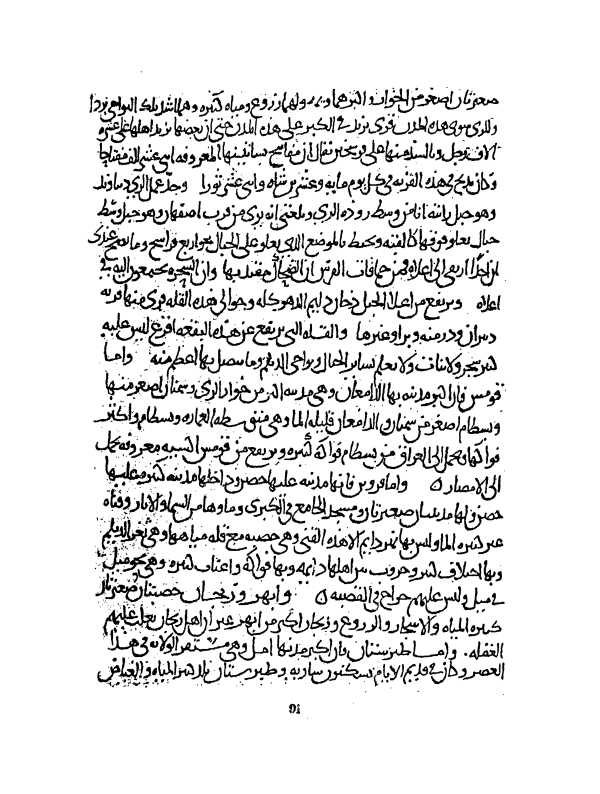 صغيرتان اصغر من الخوار واكبرهما ولهما زروع ومياه كثيره وهما اشد تلك النواحى بردا
وللرى سوى هذه المدن قرى تزيد فى الكبر على هذه المدن حتى ان بعضها يزيد اهلها على عشره
الاف رجل
وكان يذبح فى هذه القريه فى كل يوم مايه وعشرين شاه واثنى عشر ثورا وحد عمل الرى دنباوند
وهو جبل رايته انا من وسط روذه الرى وبلغنى انه يرى من قرب اصفهان وهو جبل وسط
جبال يعلو فوقها كالقبه ويحيط بالموضع الذى يعلو على الجبال نحو اربع فراسخ وما يصح عندى
ان احدا ارتقى الى اعلاه فمن حماقات الفرس ان الضحاك مقيد بها وان السحره تجتمع اليه فى
اعلاه ويرتفع من اعلا الجبل دخان دايم الدهر كله وحوالى هذه القله قرى منها قريه
دبيران ودرميه وبرا وغيرها والقله التى يرتفع عن هذه البقعه اقرع ليس عليه
كثير شجر ولا نبات ولا نعلم بساير الجبال ونواحى الديلم وما يتصل بها اعظم منه واما
قومس فان اكبر مدينه بها الدامغان وهى مدينه اكبر من خوار الرى وسمنان اصغر منها
وبسطام اصغر من سمنان والدامغان قليله الما وهى متوسطه العماره وبسطام واكثر
فواكهها يحمل الى العراق من بسطام فواكه كثيره ويرتفع من قومس اكسيه معروفه تحمل
الى الامصار واما قزوين فانها مدينه عليها حصن وداخلها مدينه كثيره عليها
حصن ولها مدينتان صغيرتان ومسجد الجامع فى الكبرى وماوها من السما والابار وقناه
غير كثيره الما وليس بها نهر دايم الا هذه القنى وهى خصبه مع قله مياهها وهى ثغر الديلم
وبها اختلاف كثير وحروب بين اهلها دايمه وبها فواكه واعناب كثيره وهى نحو ميل
فى ميل وليس عليهم خراج فى القصبه وابهر وزنجان حصنتان صغيرتان
كثيره المياه والاشجار والزروع وزنجان اكبر من ابهر غير ان اهل زنجان يغلب عليهم
الغفله. واما طبرستان فان اكبر مدنها امل وهى مستقر الولاه فى هذا
العصر وكان فى قديم الايام يسكنون ساريه وطبرستان بلد كثير المياه والغياض
91